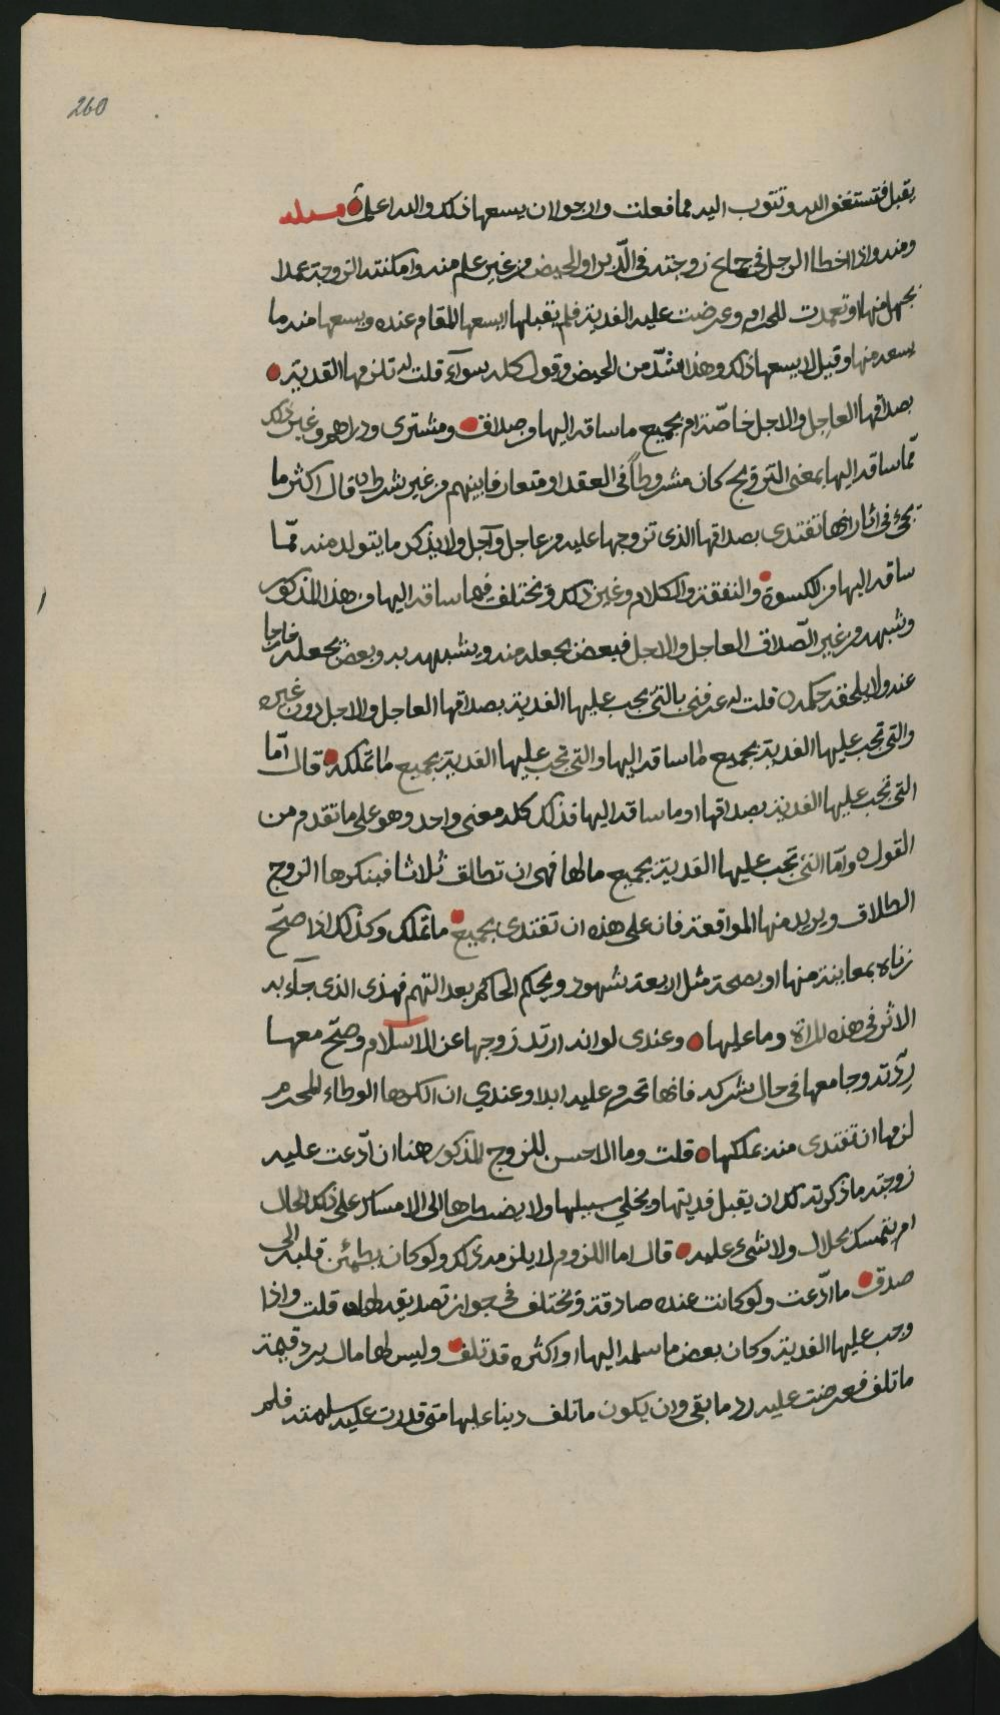 260
يقبل فتستغفر الله وتتوب اليه مما فعلت وارجو ان يسعها ذلك والله اعلم مسئلة
ومنه واذا اخطا الرجل في جماع زوجته في الدّبر او الحيض من غير علم منه وامكنته الزوجة عمدا
بجهل منها او تعمدت للحرام وعرضت عليه الفدية فلم يقبلها ايسعها المقام عنده ويسعها منه ما
يسعه منها وقيل لا يسعها ذلك وهذا اشدّ من الحيض وقول كله سوآء قلت له تلزمها الفدية
بصداقها العاجل والاجل خاصّة ام بجميع ما ساقه اليها من صداق ومشترى ودراهم وغير ذلك
ممّا ساقه اليها بمعنى التزويج كان مشروطاً في العقد او متعارفا بينهم من غير شرط قال اكثر ما
يجئ في اثار انها تفتدى بصداقها الذى تزوجها عليه من عاجل وآجل ولا يذكر ما يتولد منه ممّا
ساقه اليها من الكسوة والنفقة والكلام وغير ذلك ونختلف فيما ساقه اليها من هذا المذكور
وشبهه من غير الصّداق العاجل والاجل فبعض يجعله منه ويشبهه به وبعض يجعله خارجا
عنه ولا يلحقه حكمه قلت له عرفني بالتى يجب عليها الفدية بصداقها العاجل والاجل دون غيره
والتى تجب عليها الفدية بجميع ما ساقه اليها والتى تجب عليها الفدية بجميع ما تملكه قال امّا
التى تجب عليها الفدية بصداقها او ما ساقه اليها فذلك كله معنى واحد وهو على ما تقدم من
القول وامّا التى تجب عليها الفدية بجميع مالها فهى ان تطالق ثلاثا فينكرها الزوج
الطلاق ويريد منها المواقعة فان على هذه ان تفتدى بجميع ما تملك وكذلك اذا صحّ
زناه بمعاينة منها او بصحة مثل اربعة شهود ويحكم الحاكم بعد التهم فهذى الذى جآء به
الاثر في هذه المراة وما عليها وعندى لو انه ارتد زوجها عن الاسلام وصحّ معها
ردّته وجامعها في حال شركه فانها تحرم عليه ابدا وعندي ان اكرهها الوطاء المحرم
لزمها ان تفتدى منه بملكها قلت وما الاحسن للزوج المذكور هنا ان ادّعت عليه
زوجته ما ذكرته لك ان يقبل فديتها ويخلي سبيلها ولا يضطرها الى الامساك على ذلك الحال
ام يتمسك بحلال ولا شىء عليه قال اما اللزوم لا يلزمه ذلك ولو كان يطمئن قلبه الى
صدق ما ادّعت ولو كانت عنده صادقة ونختلف في جواز تصديقه لها قلت واذا
وجب عليها الفدية وكان بعض ما سلمه اليها او اكثره قد تلف وليس لها مال يرد قيمة
ما تلف فعرضت عليه رد ما بقى وان يكون ما تلف دينا عليها متى قدرت عليه سلمته فلم